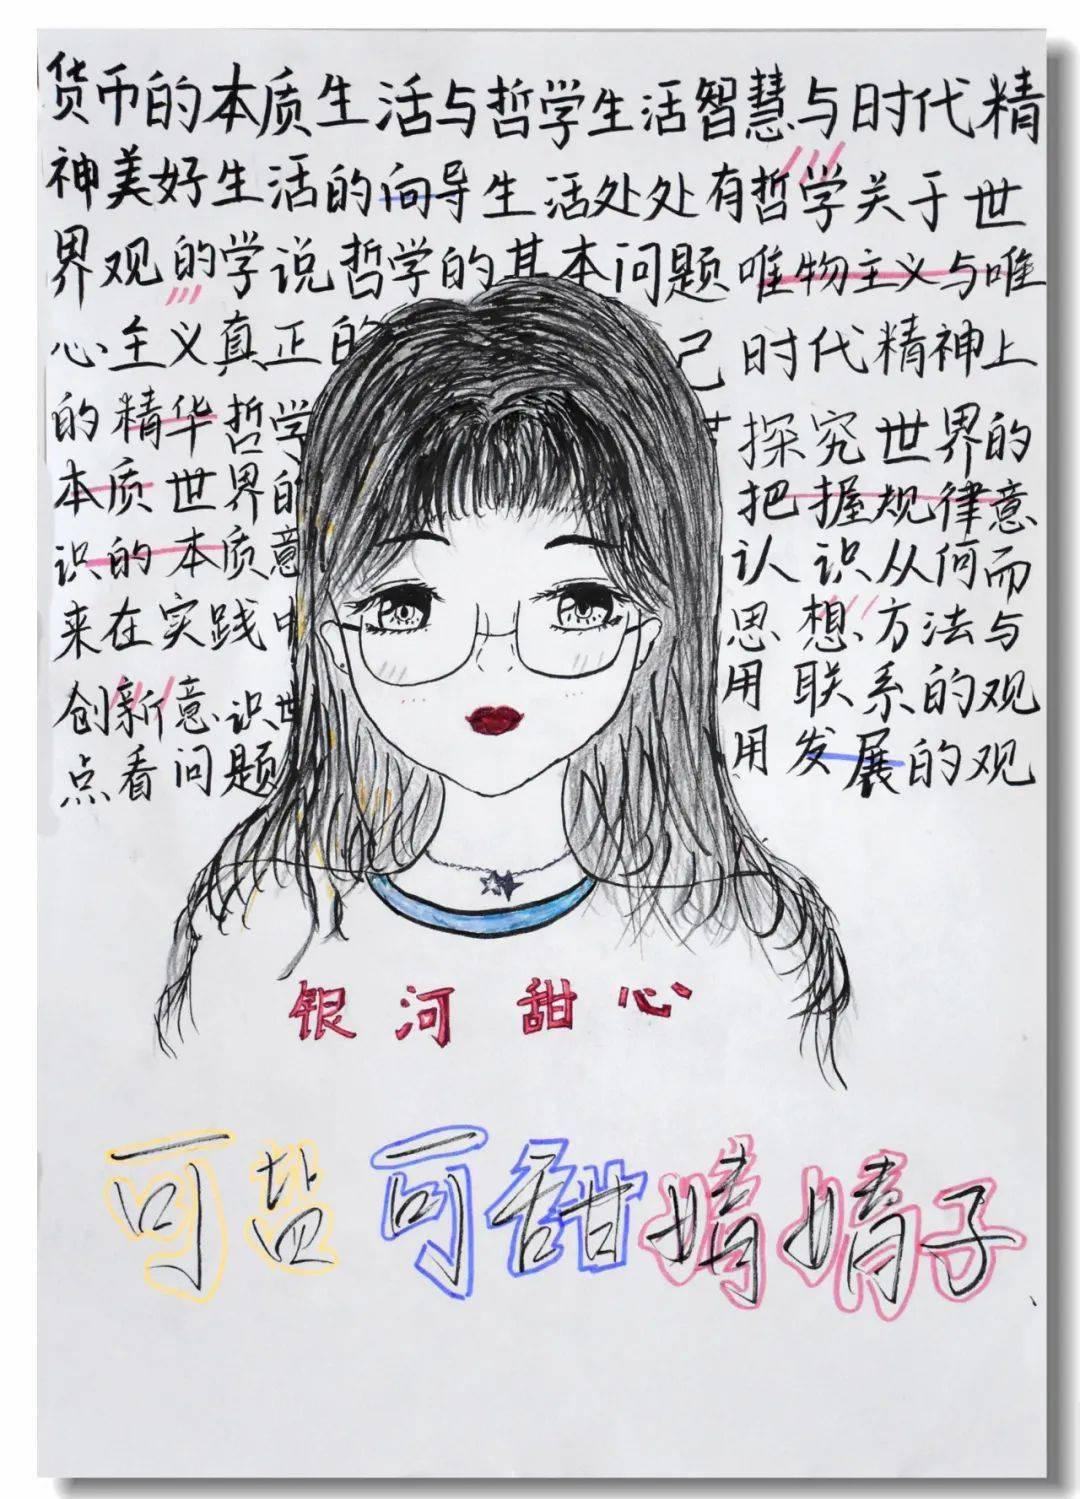 货币的本质生活与哲学生活智慧与时代精
神美好生活的向导生活处处有哲学关于世
界观的学说哲学的基本问题唯物主义与唯
心主义真正的 己时代精神上
的精华哲学 探究世界的
本质世界的 把握规律意
识的本质意 认识从何而
来在实践中 思想方法与
创新意识世 用联系的观
点看问题 用发展的观
银河甜心
可盐可甜婧婧子